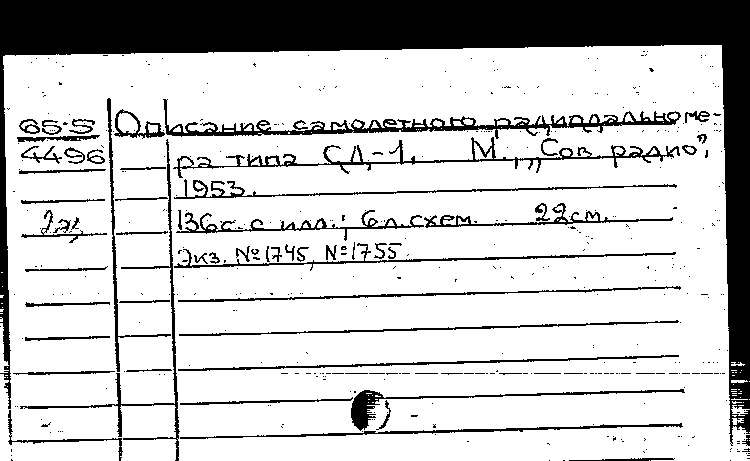 65-5 Описание самолетного радиодальноме-
4496 ра типа СД-1. М., „Сов. радио",
1953.
2 эк. 136 с. с илл.; 6 л. схем. 22 см.
Экз. №1745, №1755.